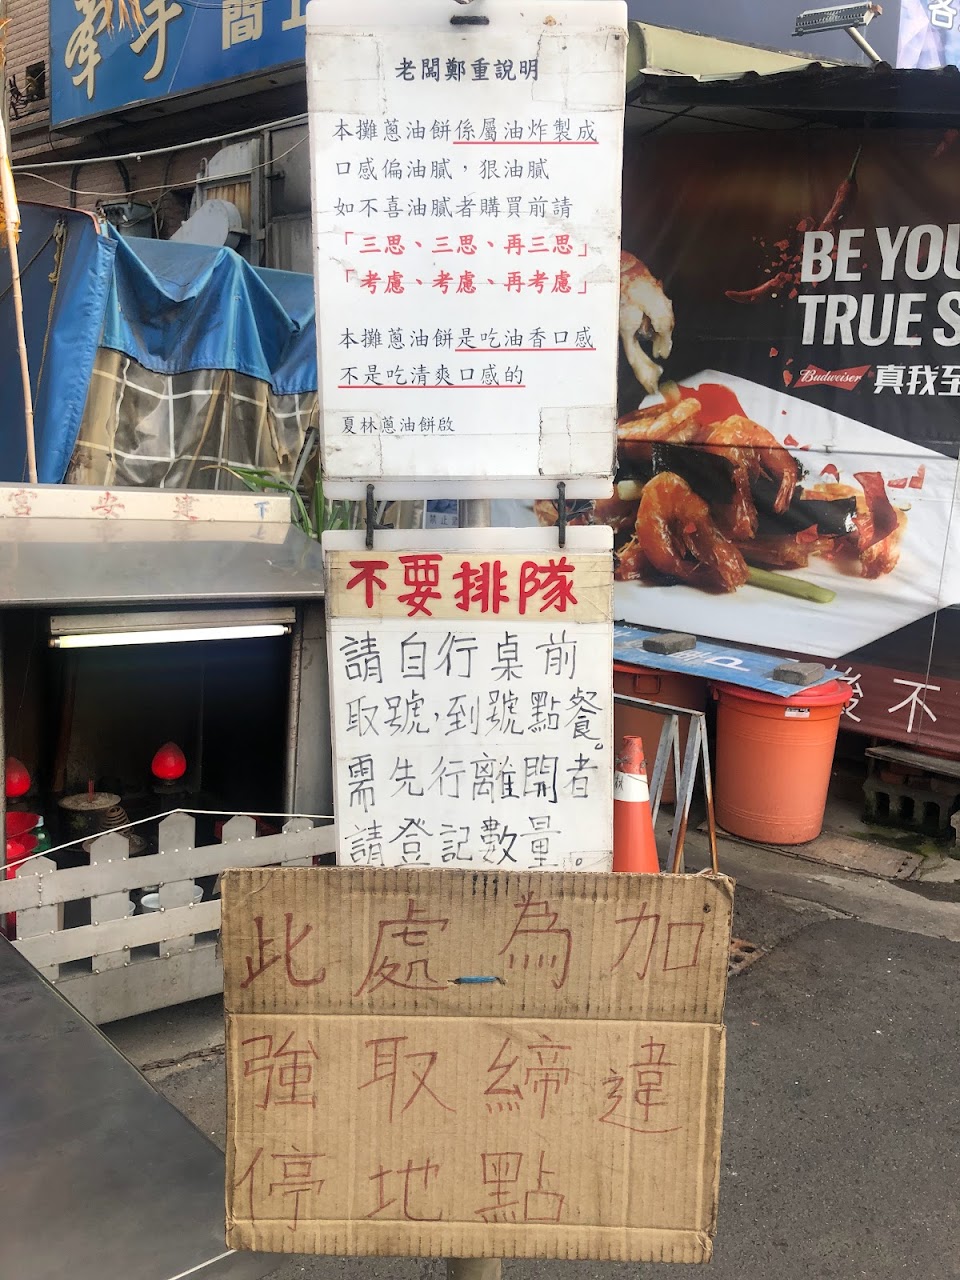 牽手
老闆鄭重說明
本攤蔥油餅係屬油炸製成
口感偏油膩，狠油膩
如不喜油膩者購買前請
「三思、三思、再三思」
「考慮、考慮、再考慮」
本攤蔥油餅是吃油香口感
不是吃清爽口感的
夏林蔥油餅啟
BE YOU
TRUE S
Budweiser 真我至
宮安建
禁止
不要排隊
請自行桌前
取號，到號點餐。
需先行離開者
請登記數量。
後不
此處為加
強取締違
停地點